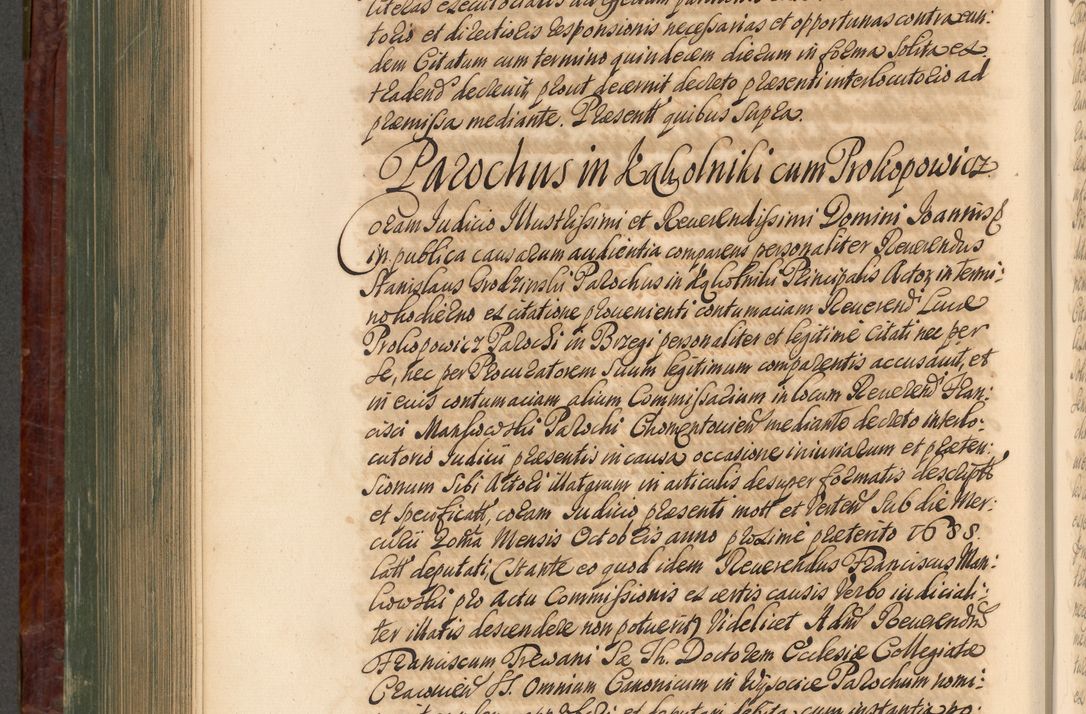 torio et directioris responsionis necessarias et opportunas contra eun:
dem Citatum cum termino quindecem dierum in forma solita ex
tradend decrevit prout decernit decreto præsenti interlocutorio ad
præmissa mediante. Præsentt quibus supra.
Parochus in Kąkolniki cum Prokopowicz
Coram Iudicio Illustrissimi et Reverendissimi Domini Ioannis &
in publica causarum audientia comparens personaliter Reverendus
Stanislaus Grodzinski Parochus in Kąkolniki Principalis Actor in termi:
no hodierno ex citatione provenienti contumaciam Reverend Lucæ
Prokopowicz Parochi in Brzegi personaliter et legitime Citati nec per
se, nec per Procuratorem suum legitimum comparentis accusavit, et
in eius contumaciam alium Commissarium in locum Reverend Fran:
cisci Mankowski Parochi Chomentovien mediante decreto interlo:
cutorio Iudicii præsentis in causa occasione iniuriarum et præten:
sionum sibi Actori illatarum in articulis desuper formatis descriptt
et specificatt, coram Iudicio præsenti mott et Verten sub die Mer:
curii 20ma Mensis Octobris anno proxime præterito 1688.
latt deputati, (Stante eo quod idem Reverendus Franciscus Man:
kowski pro actu Commissionis ex certis causis verbo iudiciali:
ter illatis descendere non potuerit) Videlicet Adm Reverendum
Franciscum Prewani Sæ Th. Doctorem Ecclesiæ Collegiatæ
Cracovien SS. Omnium Canonicum in Wysocice Parochum nomi: